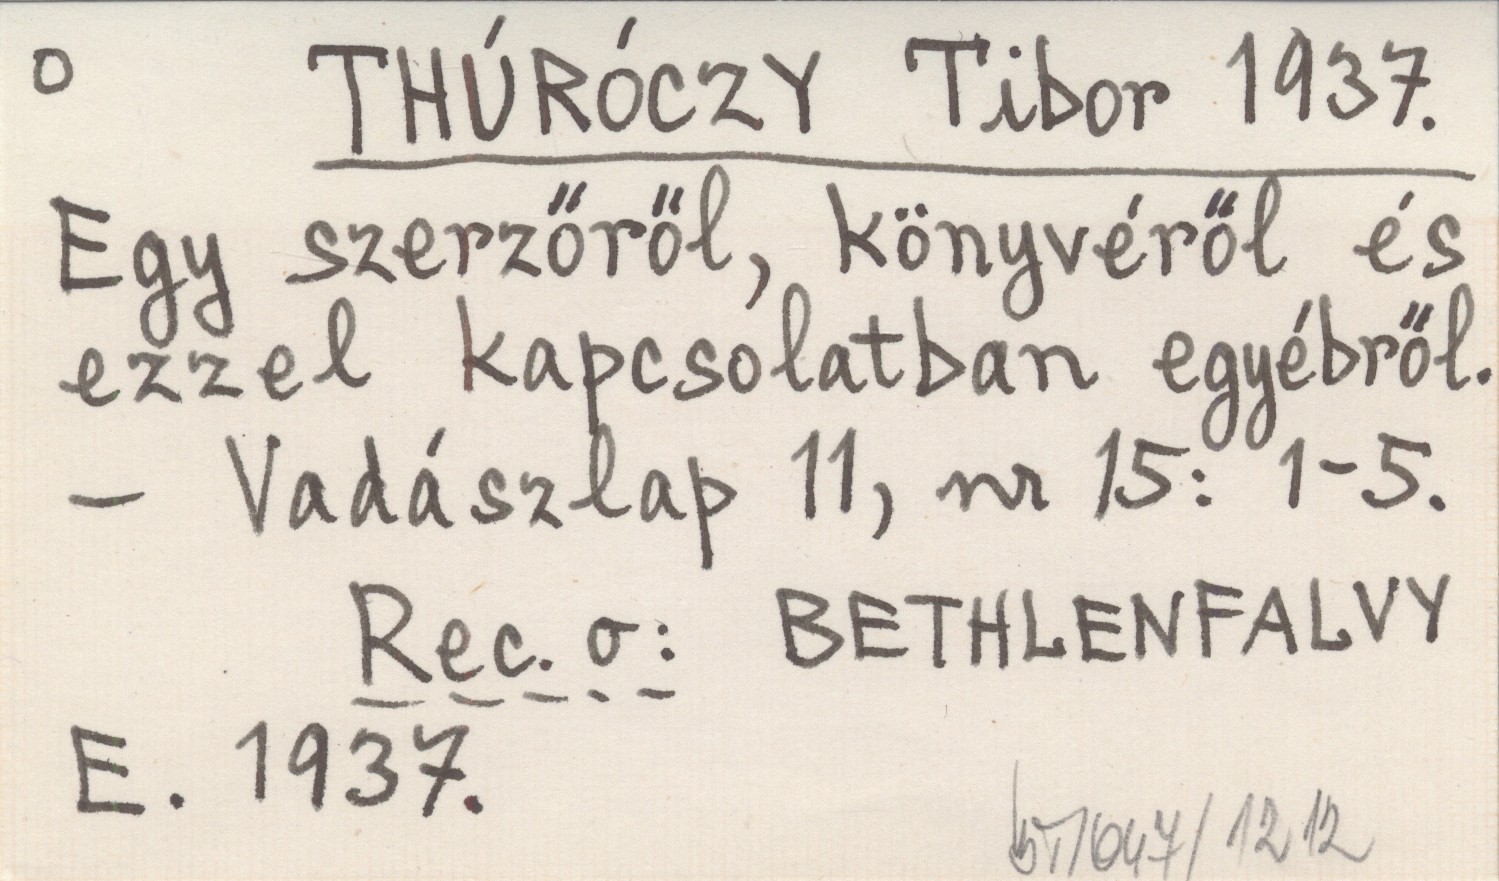 o THÚRÓCZY Tibor 1937.
Egy szerzőről, könyvéről és
ezzel kapcsolatban egyébről.
— Vadászlap 11, nr 15: 1-5.
Rec. o: BETHLENFALVY
E. 1937.
1212